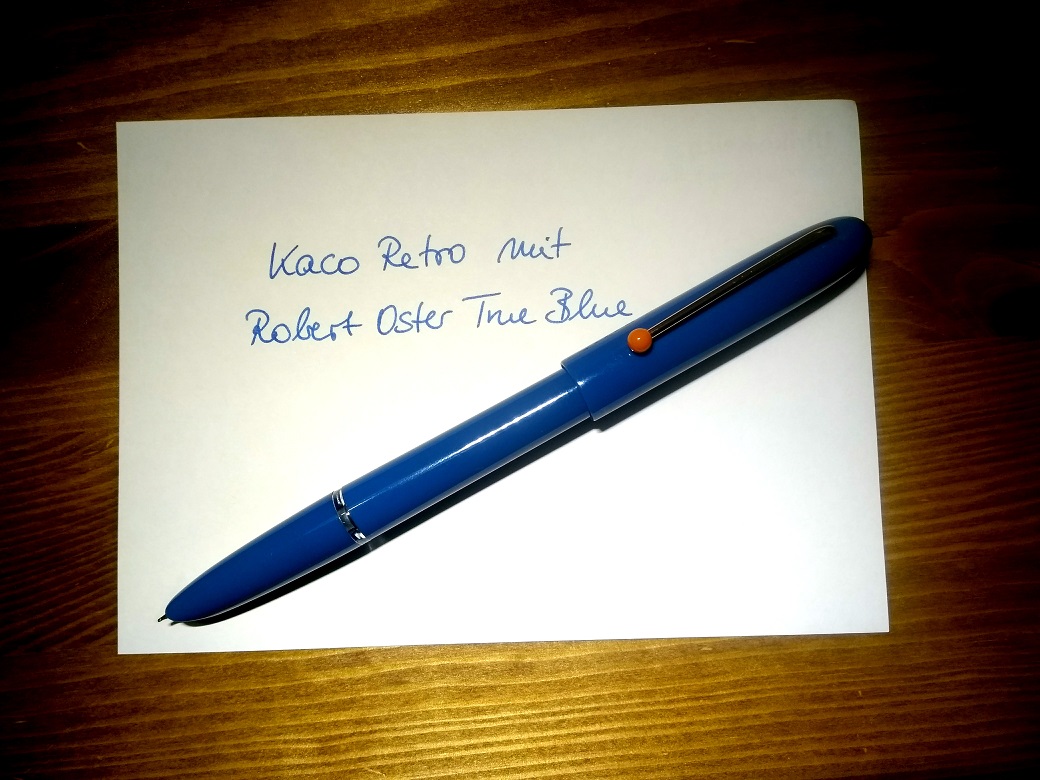 Kaco Retro mit
Robert Oster True Blue